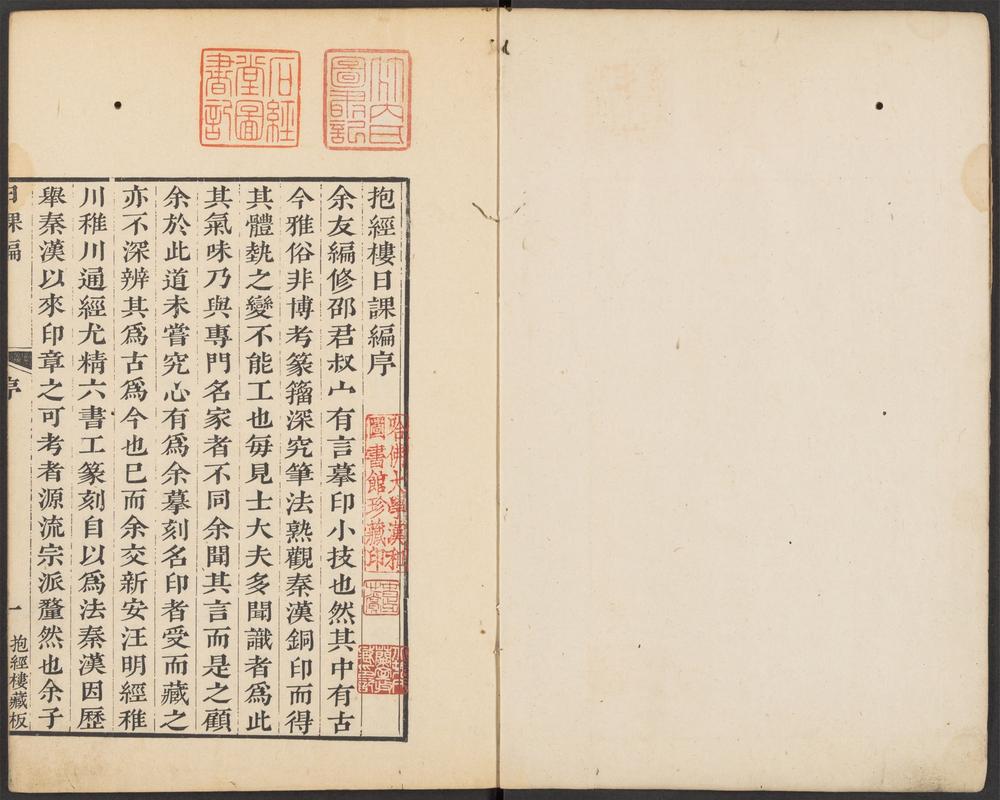 抱經樓日課編序
余友編修邵君叔宀有言摹印小技也然其中有古
今雅俗非博考篆籀深究筆法熟觀秦漢銅印而得
其體埶之變不能工也每見士大夫多聞識者爲此
其氣味乃與專門名家者不同余聞其言而是之顧
余於此道未嘗究心有爲余摹刻名印者受而藏之
亦不深辨其爲古爲今也巳而余交新安汪明經稚
川稚川通經尤精六書工篆刻自以爲法秦漢因歷
舉秦漢以來印章之可考者源流宗派釐然也余子
日課編
序
一
抱經樓藏板
石經
堂圖
書記
哈佛大學漢和
圖書館珍藏印